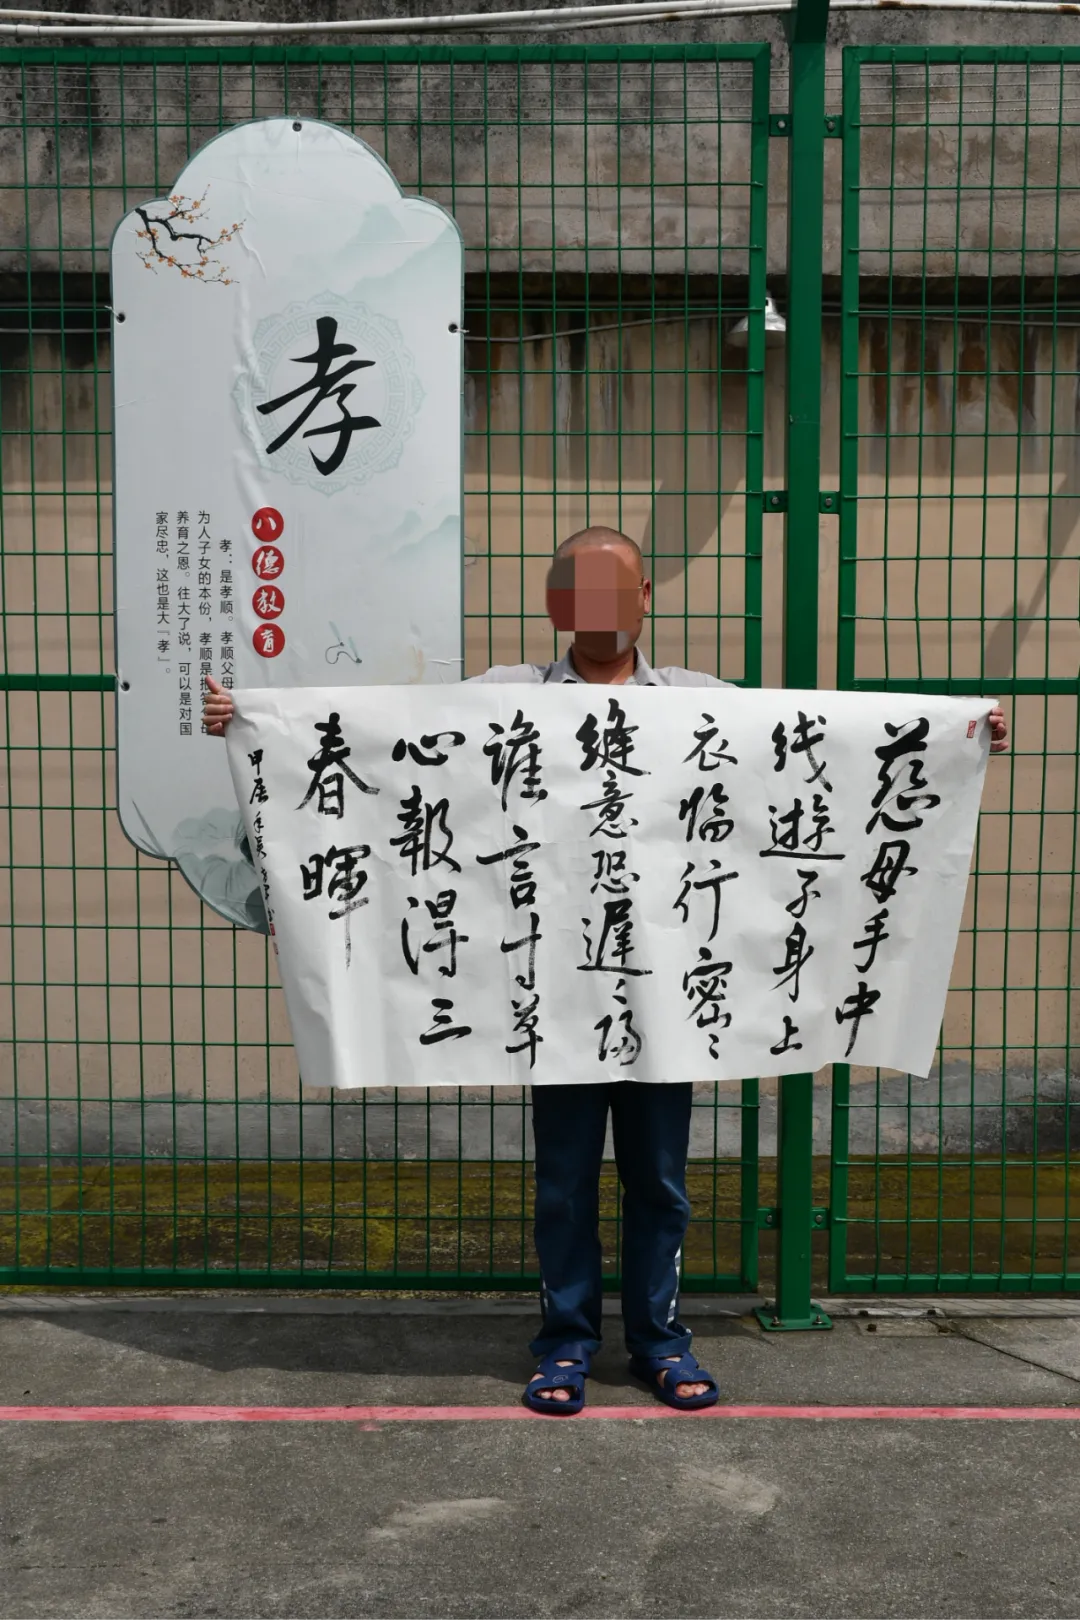 孝
八德教育
孝：是孝顺。孝顺父母
为人子女的本份，孝顺是报答父母
养育之恩。往大了说，可以是对国
家尽忠，这也是大『孝』。
慈母手中
线遊子身上
衣临行密〻
缝意恐遲〻歸
谁言寸草
心報得三
春暉
甲辰年